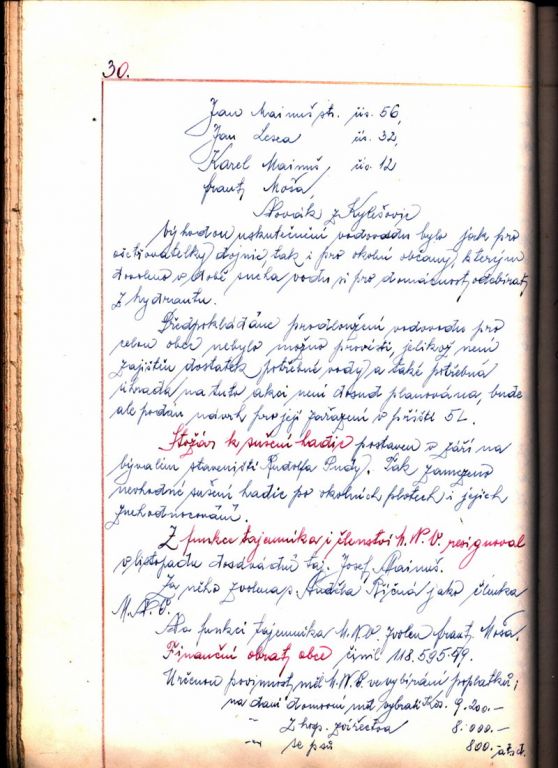 30.
Jan Mainuš st. čís. 56,
Jan Lesca čís. 32,
Karel Mainuš, čís. 12
frant. Moša,
Novák z Kylešovic
Výhodou uskutečnění vodovodu bylo jak pro
ošetřovatelky dojnic tak i pro okolní občany, kterým
dovoleno v době sucha vodu si pro domácnost odebírat
z hydrantu.
Předpokládáné prodloužení vodovodu pro
celou obec nebylo možno provésti, jelikož není
zajištěn dostatek potřebné vody a také potřebná
úhrada na tuto akci není dosud planována, bude
ale podán návrh pro její zařazení v příští 5L.
Stožár k sušení hadic postaven v září na
bývalém staveništi Rudolfa Pudy. Tak zamezeno
nevhodné sušení hadic po okolních plotech i jejich
znehodnocování.
Z funkce tajemníka i členství M.N.V. resignoval
v listopadu dosavádní taj. Josef Mainuš.
Za něho zvolena p. Anežka Říčná jako členka
M.N.V.
Na funkci tajemníka M.N.V. zvolen frant. Moša.
Finanční obrat obce činil 118.595.79.
Určenou povinnost měl M.N.V. ve vybírání poplatků i
na dani domovní měl vybrati Kčs. 9.200.-
" Z hosp. zvířectva 8.000.-
" ze psů 800.- atd.